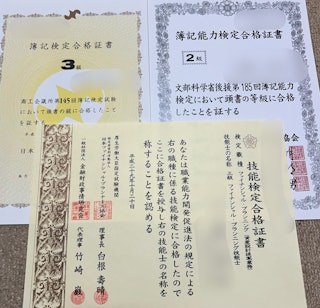 簿記検定合格証書
3級
商工会議所第145回簿記検定試験
において頭書の級に合格したこと
を証する
日本
簿記能力検定合格証書
2級
文部科学省後援第185回簿記能力
検定において頭書の等級に合格
したことを証する
協会
技能検定合格証書
検定職種 ファイナンシャル・プランニング
技能士の名称 三級 ファイナンシャル・プランニング技能士
あなたは職業能力開発促進法の規定による
右の職種に係る技能検定に合格したので
ここに合格証書を授与し右の技能士の名称を
称することを認める
平成二十九年十月二十日
厚生労働大臣指定試験機関
一般社団法人 金融財政事情研究会
理事長 白根壽晴
代表理事 竹崎巌